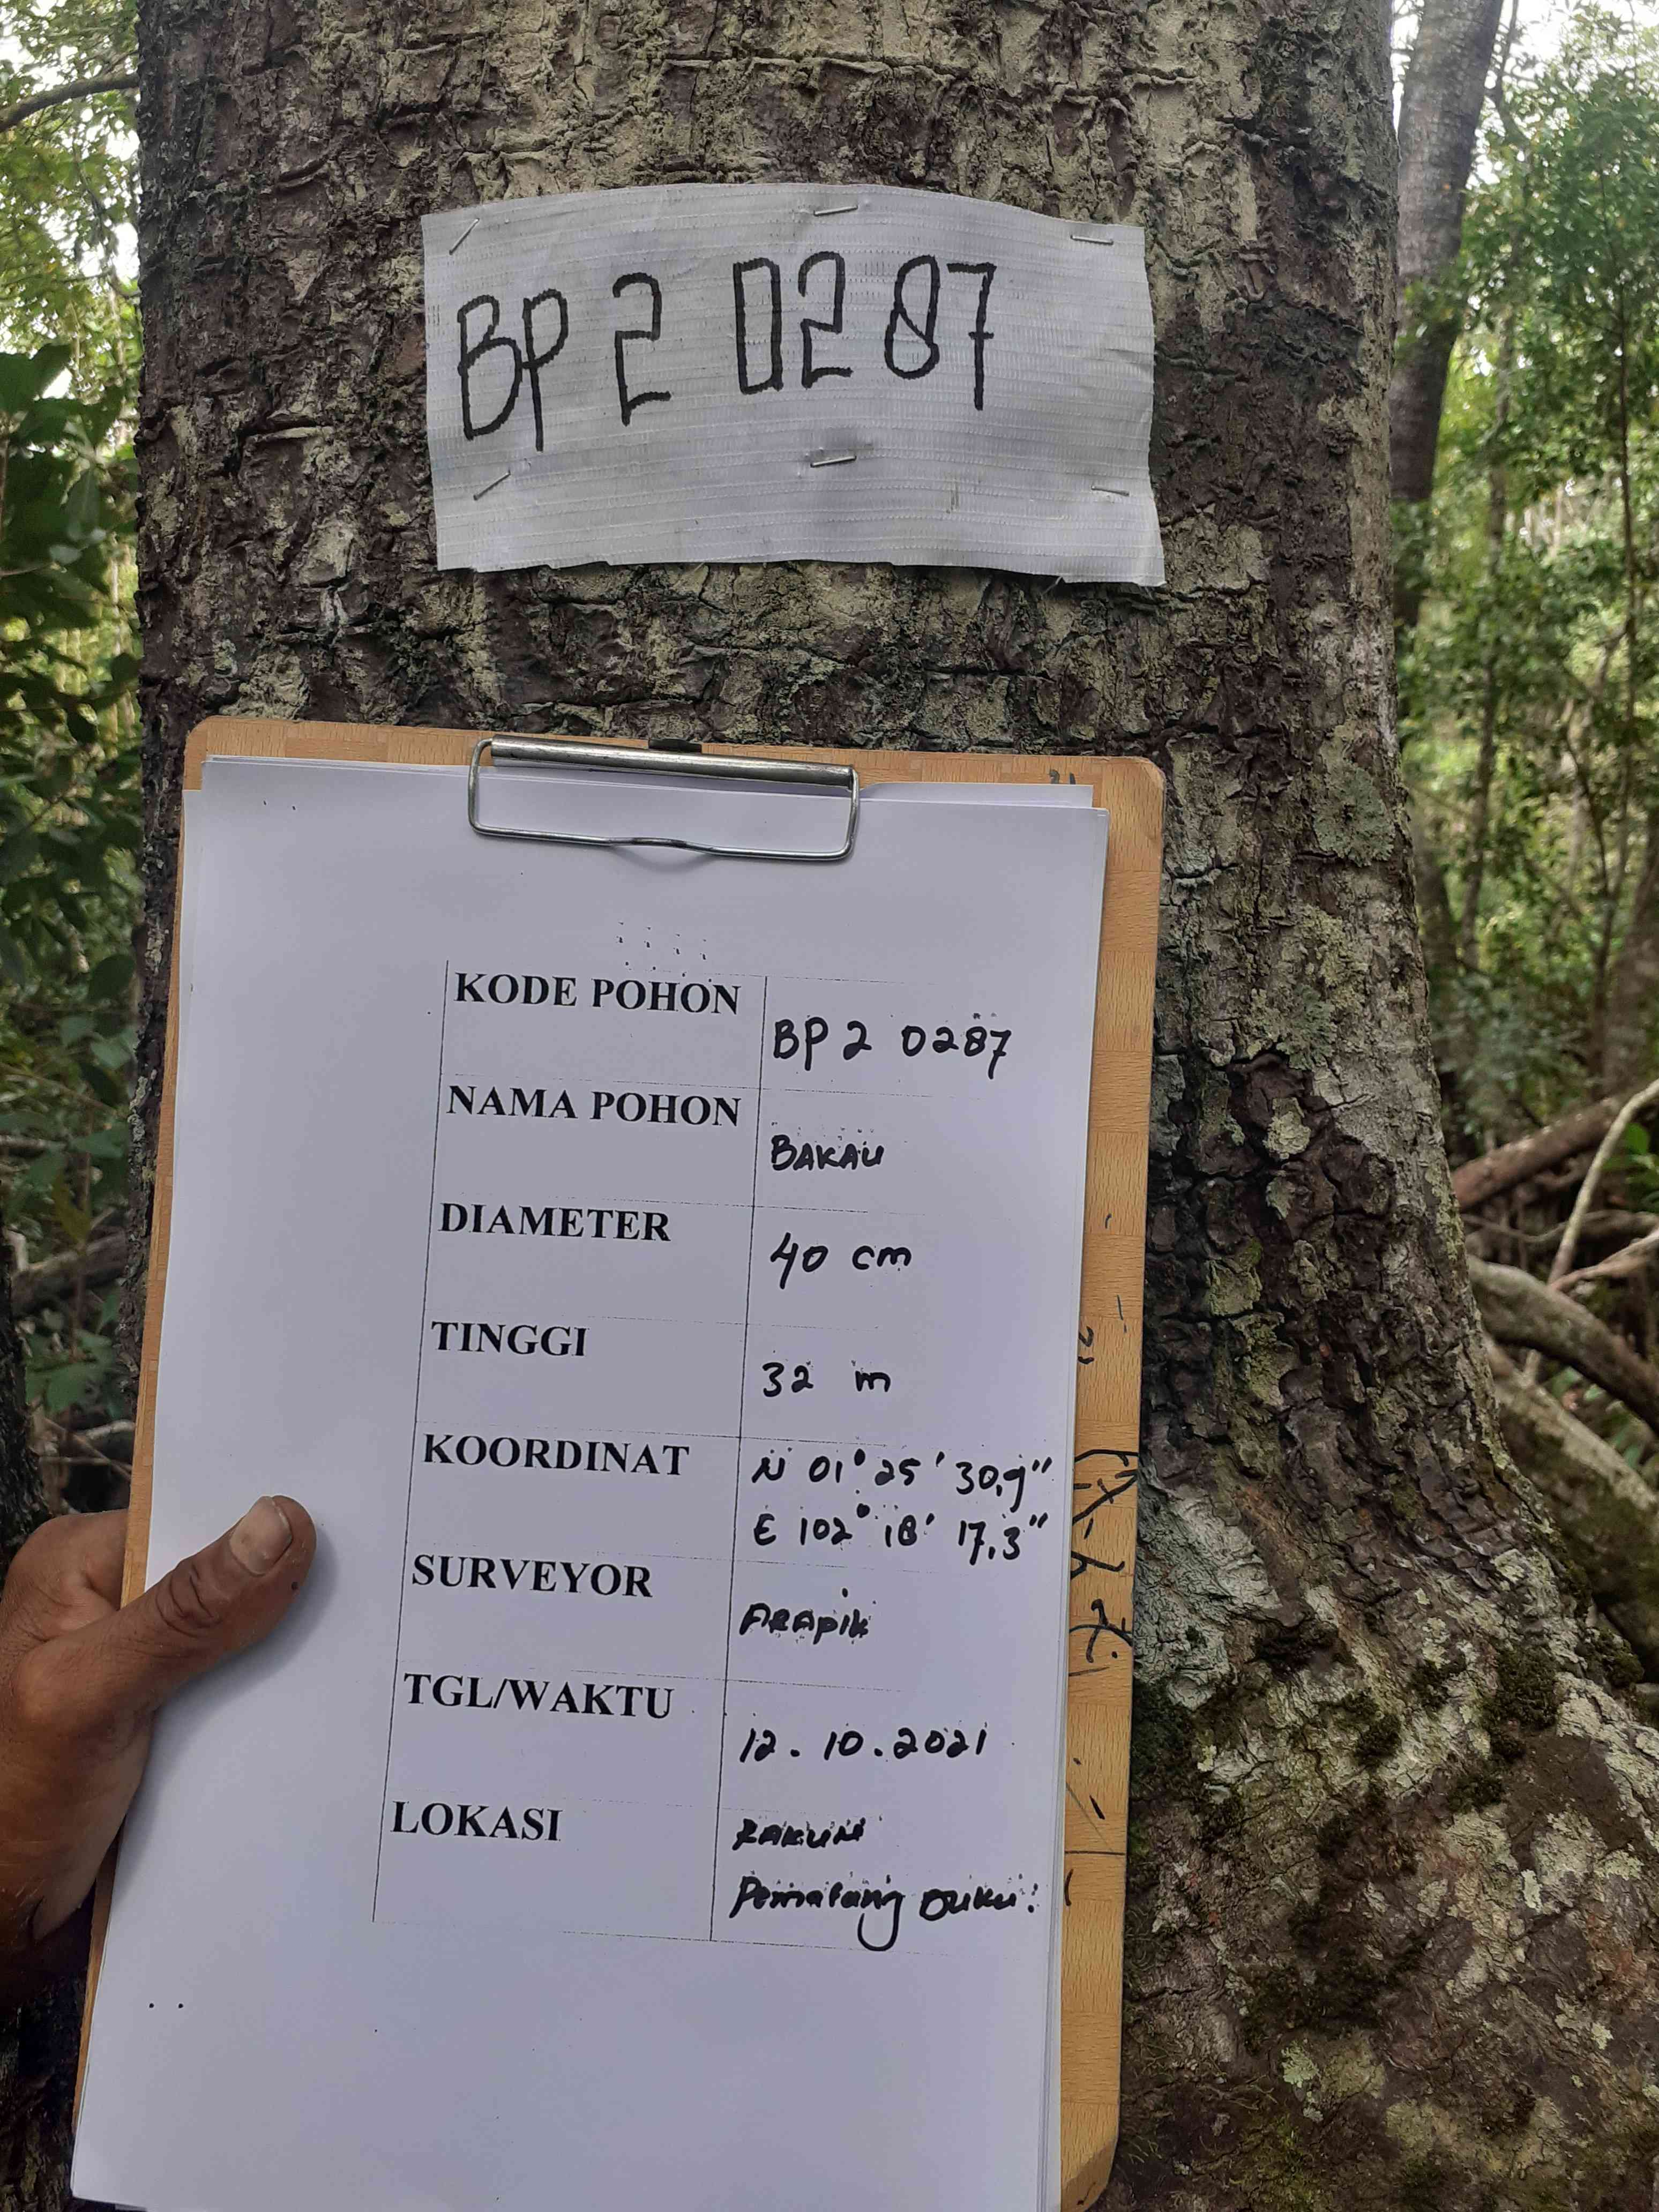 BP 2 0287
KODE POHON
BP 2 0287
NAMA POHON
BAKAU
DIAMETER
40 cm
TINGGI
32 m
KOORDINAT
N 01° 25' 30,9"
E 102° 18' 17,3"
SURVEYOR
ARAPIK
TGL/WAKTU
12.10.2021
LOKASI
Pematang Duku